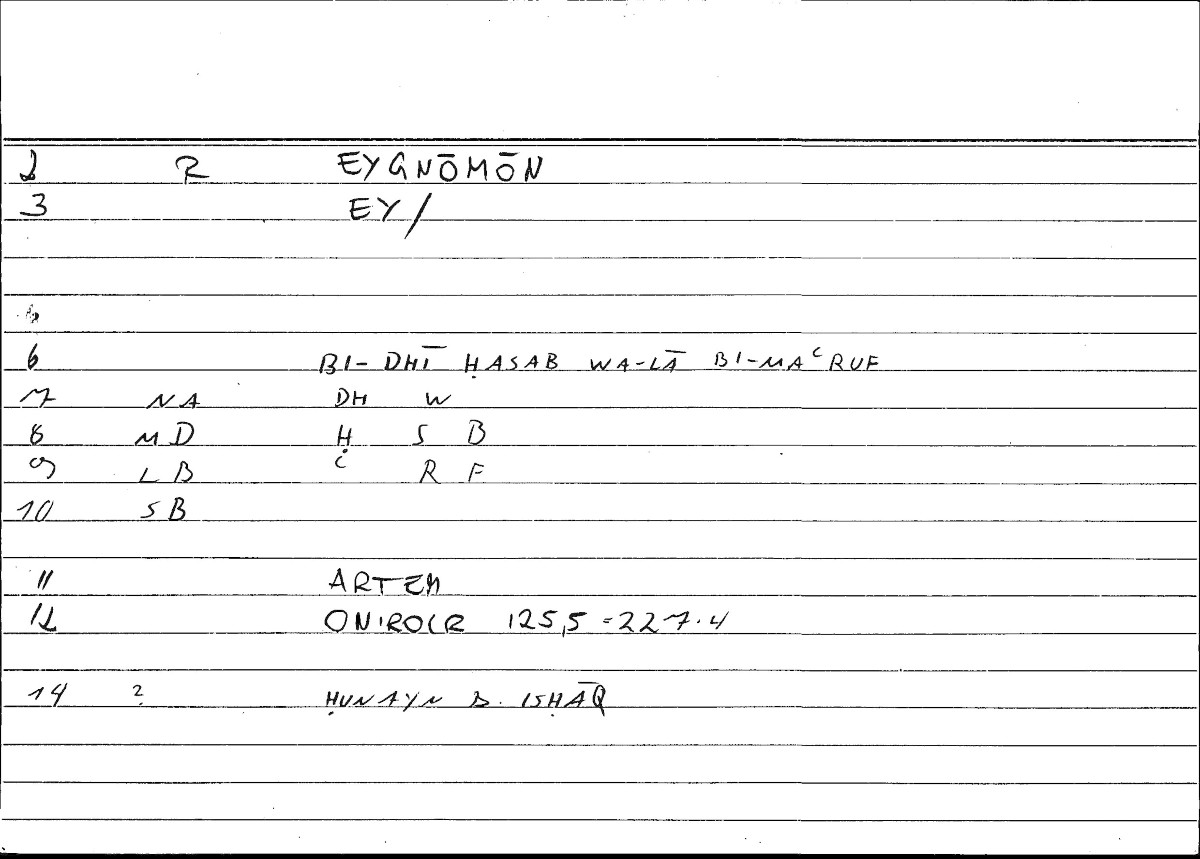 2 R EYGNŌMŌN
3 EY/
6 BI-DHĪ ḤASAB WA-LĀ BI-MAʿRUF
7 NA DH W
8 MD Ḥ S B
9 LB ʿ R F
10 SB
11 ARTEM
12 ONIROCR 125,5 = 227.4
14 ? ḤUNAYN B. ISḤĀQ